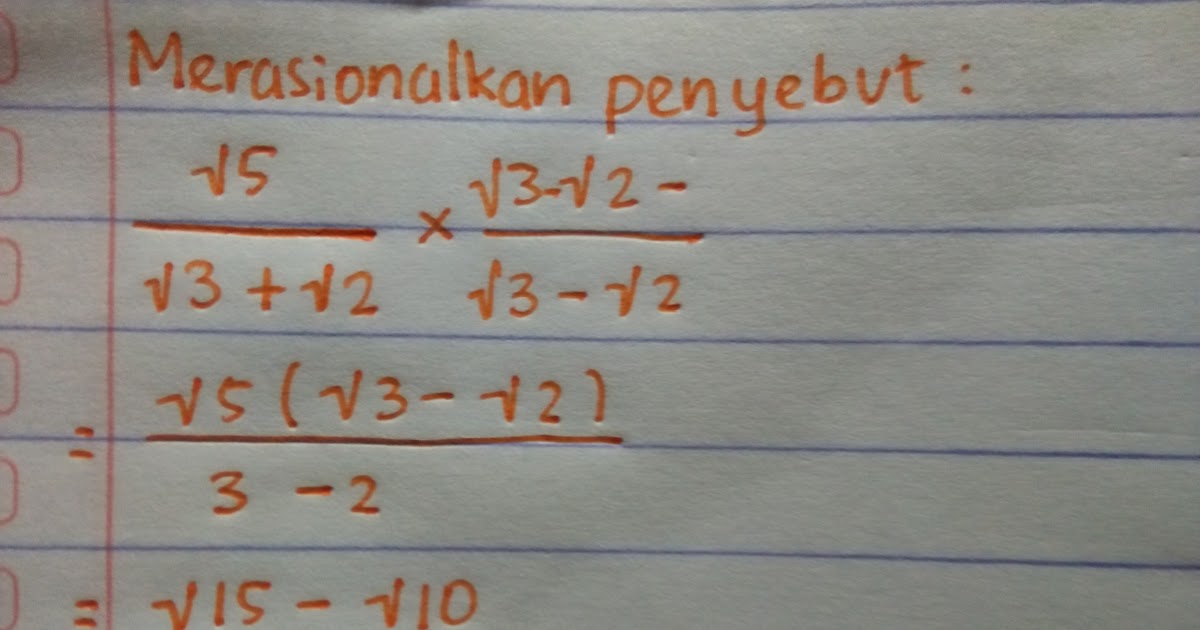 Merasionalkan penyebut :
√5 / √3 + √2 × √3 - √2 - / √3 - √2
= √5 ( √3 - √2 ) / 3 - 2
= √15 - √10